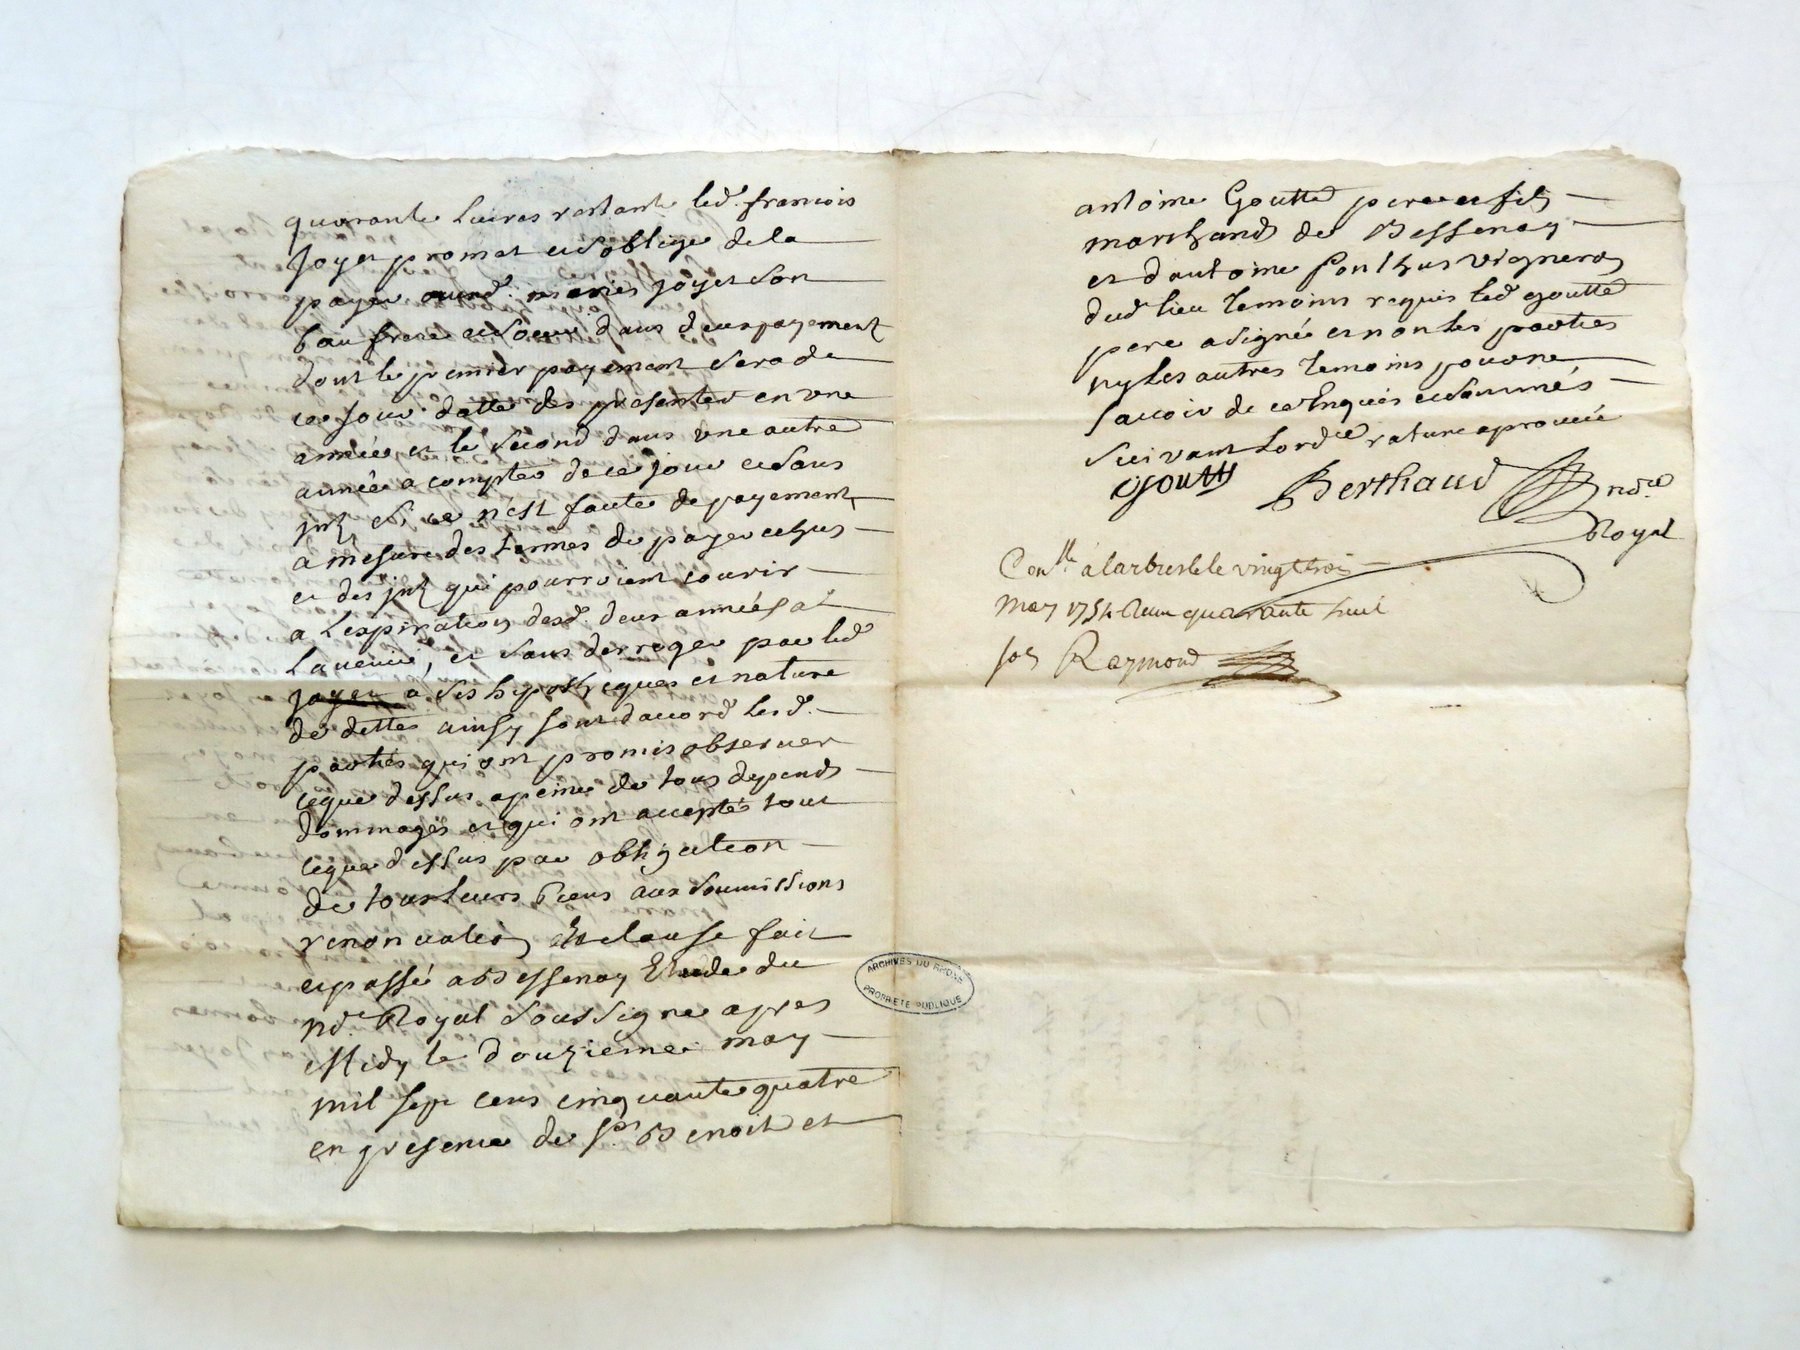 quarante Livres restante led. francois
Joyet promet et s'oblige de la
payer aund. maries joyet son
bau frere et soeur dans deux payement
dont le premier payement sera de
ce jour datte des presentes en une
année et le second dans une autre
année a compter de ce jour et sans
jnt si ce n'est faute de payement
a mesure des termes de payer
et des jnt qui pourroient courir
a Lexpiration desd. deux années a
Lavenir, et sans derroger par led
joyet a ses hypotheques et nature
de dettes ainsy sont d'accord lesd.
parties qui ont promis observer
ceque dessus a peine de tous depends
dommages et qui ont accepté tout
ceque dessus par obligation
de tous leurs biens aux soumissions
renonciation et clause fait
et passé a Bessenay Etude du
nd.e Royal soussigné apres
Midy le douzieme may
mil sept cens cinquante quatre
en presence de sr. Benoit et
antoine Goutte pere et fils
marchands de Bessenay
et d'antoine Ponthus vigneron
dud lieu temoins requis led goutte
pere a signé et non les parties
ny les autres temoins pour ne
scavoir de ce Enquis et sommés
suivant Lordce rature aprouvée
Goutte Berthaud nd.re
Royal
Con.lle a Larbresle le vingt trois
may 1754 Reçu quarante huit
sols Raymond
ARCHIVES DU RHONE
PROPRIETE PUBLIQUE